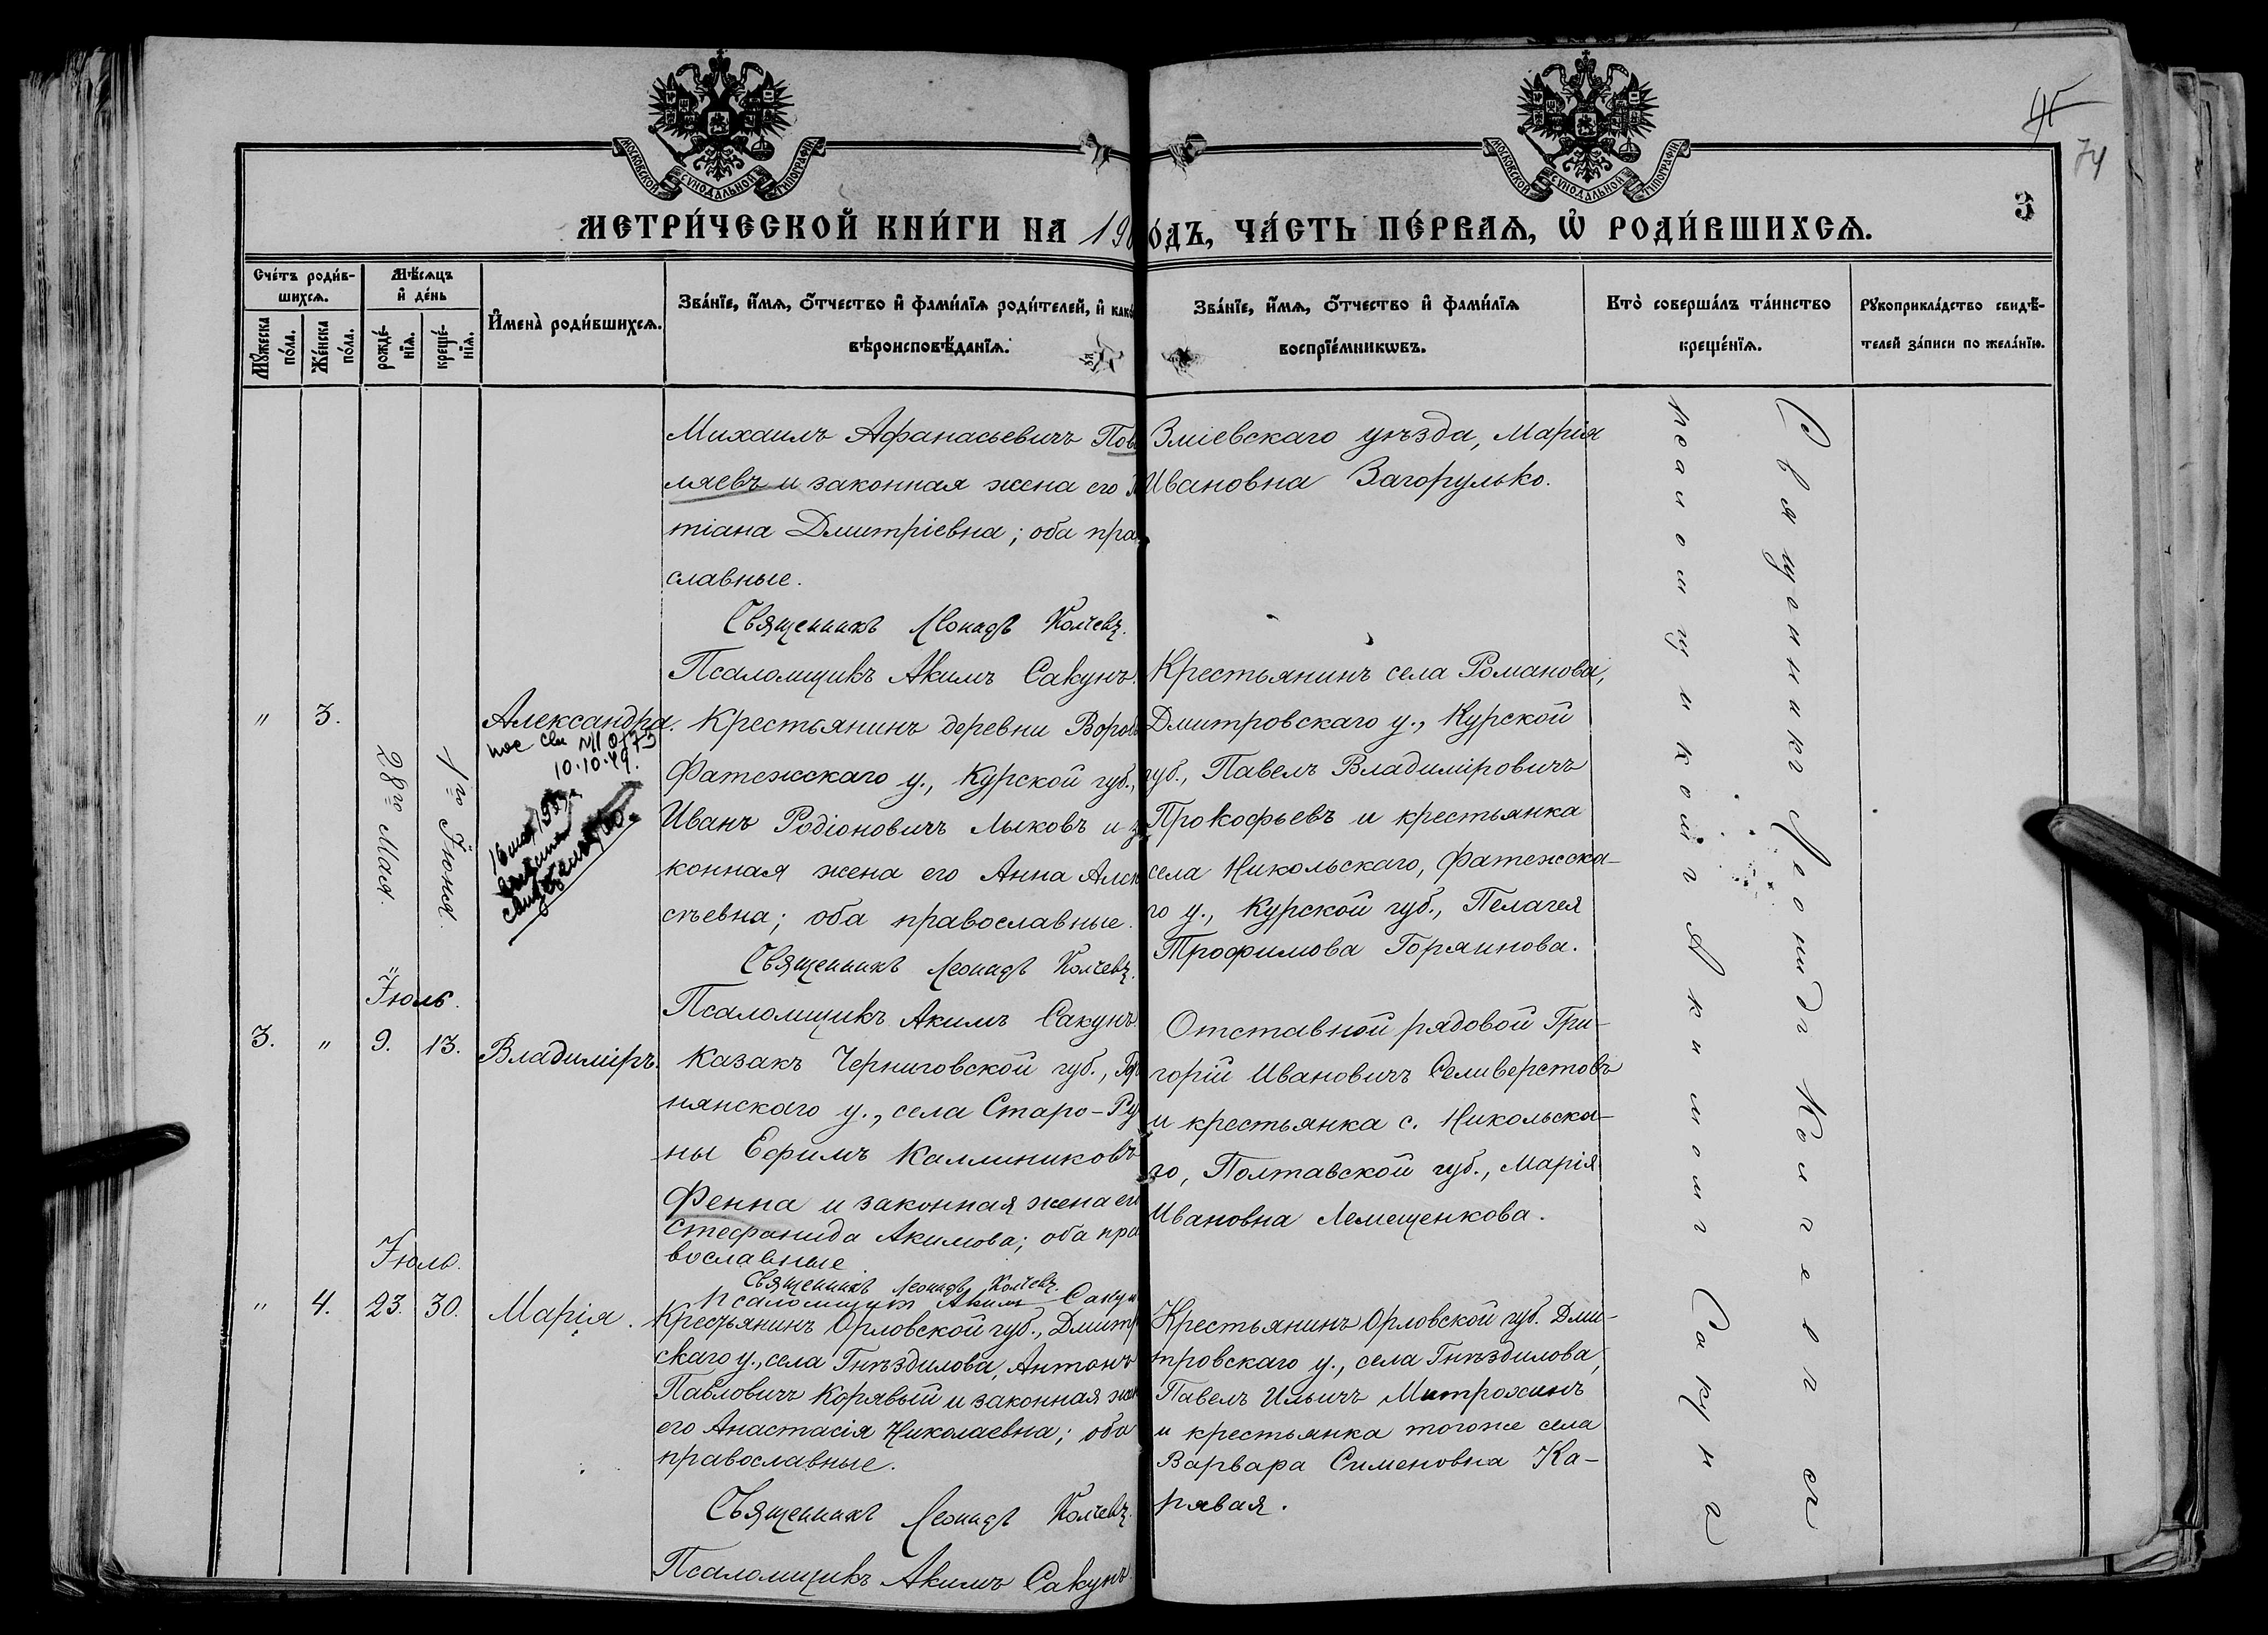 45
74
МОСКОВСКОЙ СѴНОДАЛЬНОЙ ТИПОГРАФІИ
МОСКОВСКОЙ СѴНОДАЛЬНОЙ ТИПОГРАФІИ
3
МЕТРИ́ЧЕСКОЙ КНИ́ГИ НА 190
О́ДЪ, ЧА́СТЬ ПЕ́РВАѦ, Ѡ РОДИ́ВШИХСѦ.
Сче́тъ роди́в-
шихсѧ.
Мꙋ́жеска
по́ла.
Же́нска
по́ла.
Мѣ́сѧцъ
и де́нь
рожде́-
нїѧ.
креще́-
нїѧ.
Имена̀ роди́вшихсѧ.
Зва́нїе, и́мѧ, о́тчество и фами́лїѧ роди́телей, и како́
вѣроисповѣ́данїѧ.
Зва́нїе, и́мѧ, о́тчество и фами́лїѧ
воспрїе́мникѡвъ.
Кто̀ соверша́лъ та́инство
креще́нїѧ.
Рꙋкоприкла́дство свидѣ́-
телей за́писи по жела́нїю.
Михаилъ Афанасьевичъ Пов
ляевъ и законная жена его Та
тіана Дмитріевна; оба пра
славные.
Священникъ Леонидъ Колчевъ.
Псаломщикъ Акимъ Сакунъ.
Зміевскаго уѣзда, Марія
Ивановна Загорулько.
" 3.
28го Мая.
1го Іюня.
Александра.
10.10.49.
Крестьянинъ деревни Вороб
Фатежскаго у., Курской губ.,
Иванъ Родіоновичъ Лыковъ и з
конная жена его Анна Алек
сѣевна; оба православные.
Священникъ Леонидъ Колчевъ.
Псаломщикъ Акимъ Сакунъ.
Крестьянинъ села Романова,
Дмитровскаго у., Курской
губ., Павелъ Владиміровичъ
Прокофьевъ и крестьянка
села Никольскаго, Фатежска-
го у., Курской губ., Пелагея
Трофимова Горяинова.
Іюль.
3. " 9. 13. Владиміръ.
Казакъ Черниговской губ., Гор
нянскаго у., села Старо-Ру
ны Ефимъ Каллиниковъ
Фенна и законная жена его
Стефанида Акимова; оба пра
вославные
Священникъ Леонидъ Колчевъ.
Псаломщикъ Акимъ Сакун
Отставной рядовой Гри-
горій Ивановичъ Селиверстовъ
и крестьянка с. Никольска-
го, Полтавской губ., Марія
Ивановна Лемещенкова.
Іюль.
" 4. 23. 30. Марія.
Крестьянинъ Орловской губ., Дмитр
скаго у., села Гнѣздилова, Антонъ
Павловичъ Корявый и законная жен
его Анастасія Николаевна; оба
православные.
Священникъ Леонидъ Колчевъ.
Псаломщикъ Акимъ Сакунъ.
Крестьянинъ Орловской губ. Дми-
тровскаго у., села Гнѣздилова,
Павелъ Ильичъ Митрохинъ
и крестьянка тогоже села
Варвара Сименовна Ка-
рявая.
Священникъ Леонидъ Колчевъ съ
псаломщикомъ Акимомъ Сакунъ